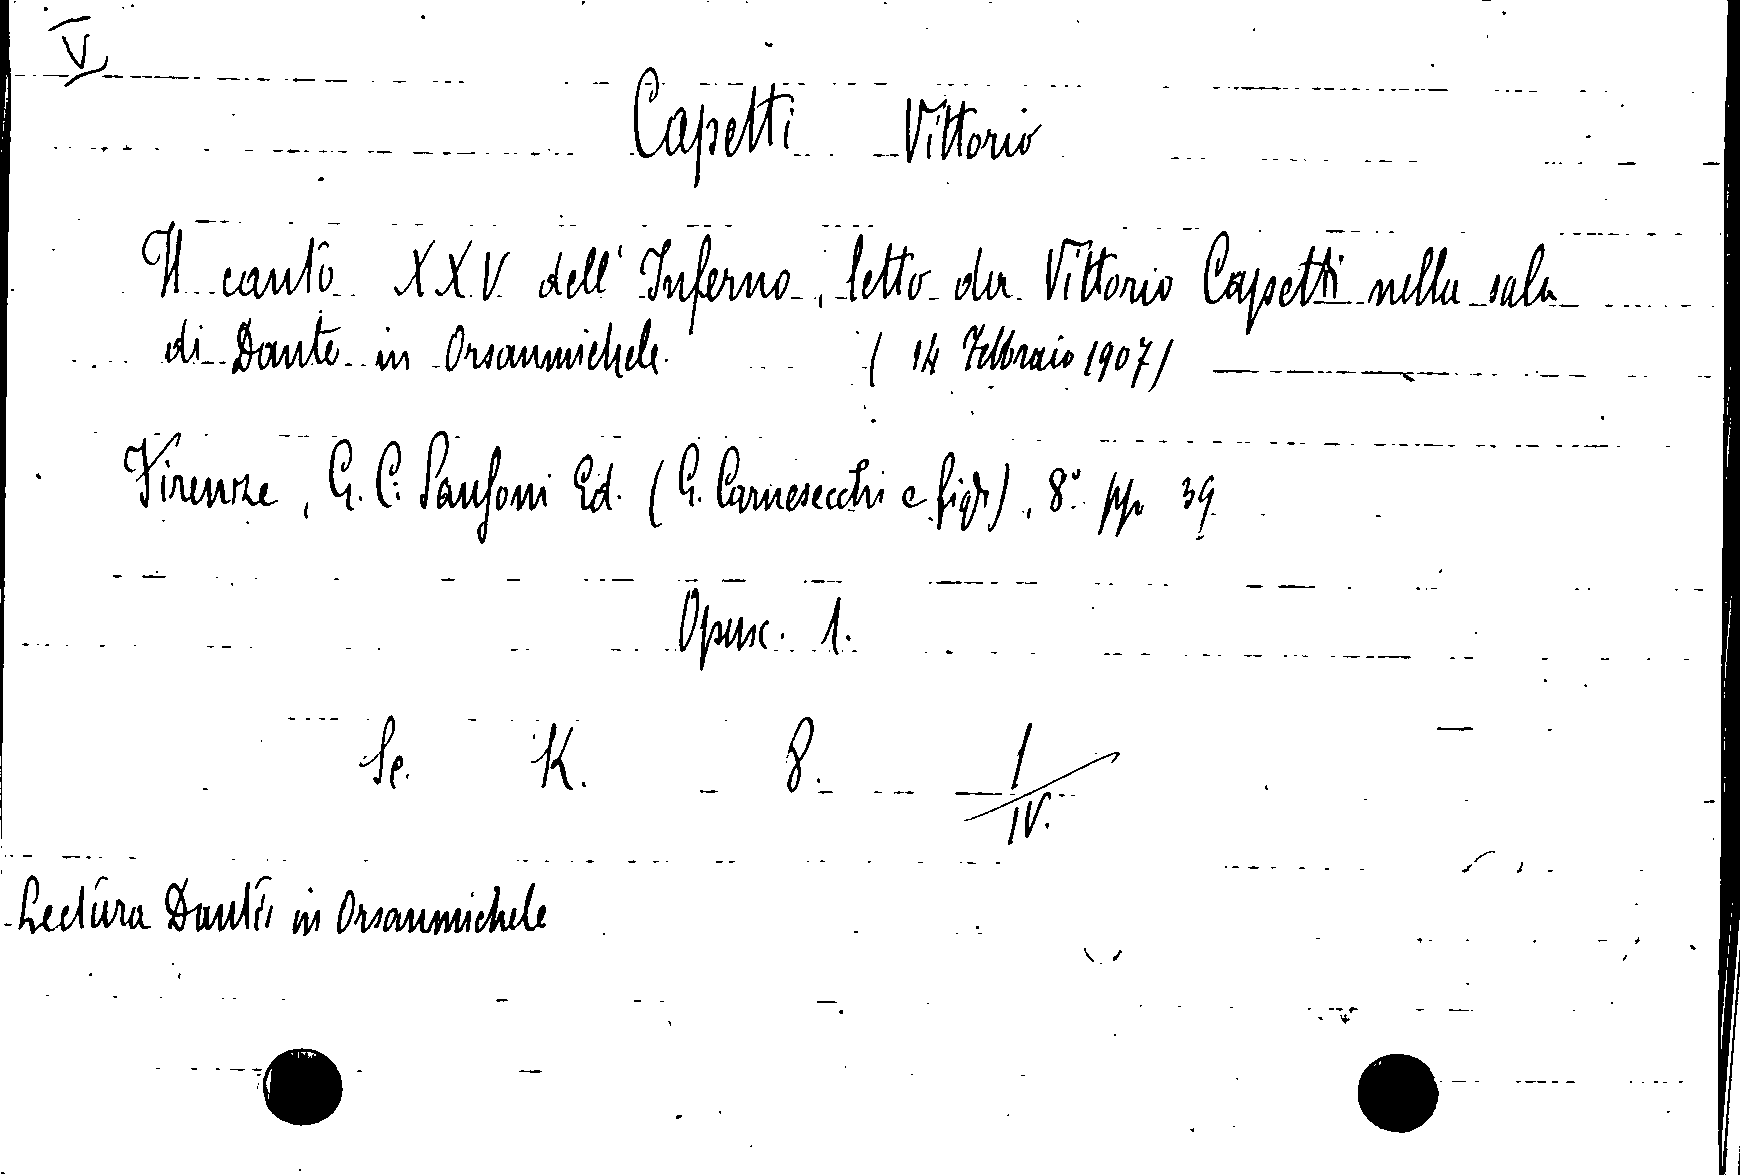 V
Capetti Vittorio
Il canto XXV dell' Inferno, letto da Vittorio Capetti nella sala
di Dante in Orsanmichele. (14 Febbraio 1907)
Firenze, G. C. Sansoni Ed. (G. Carnesecchi e figli), 8° pp. 39
Opusc. 1.
Sc. K. 8. 1/IV.
Lectura Dantis in Orsanmichele